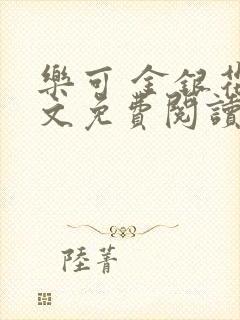 樂可 金銀花
文免費閱讀
陸菁